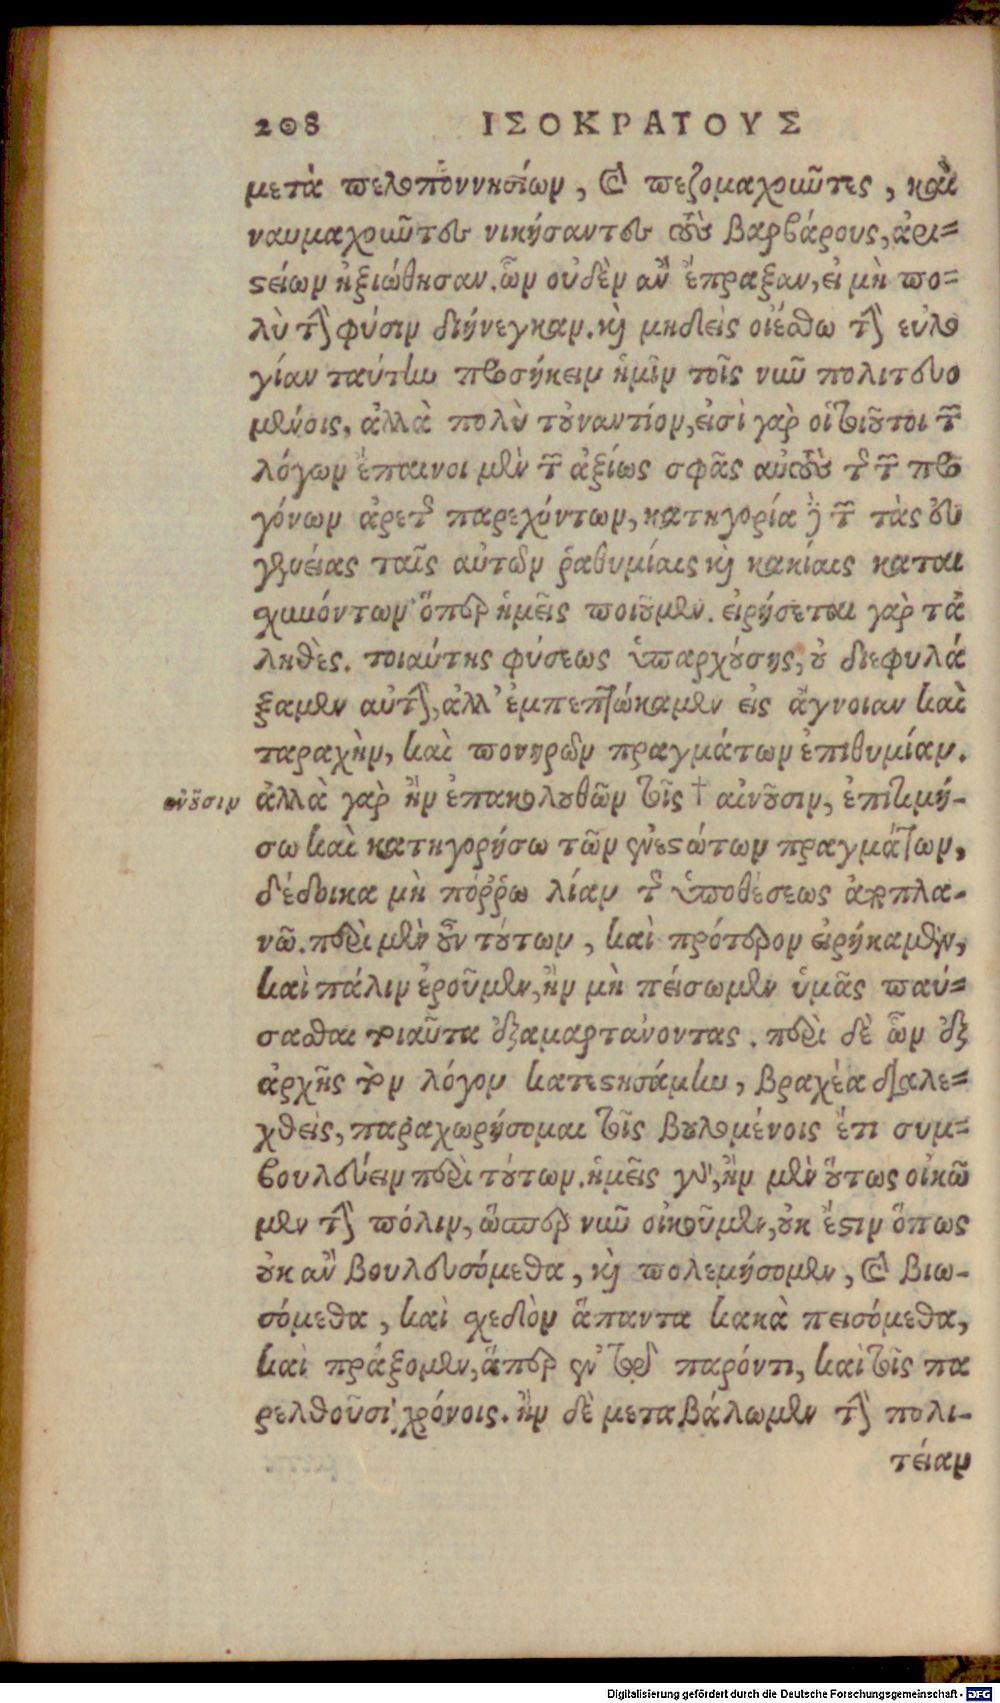 208 ΙΣΟΚΡΑΤΟΥΣ
μετὰ πελοποννησίων, καὶ πεζομαχοῦντες, καὶ
ναυμαχοῦντες νικήσαντες τοὺς βαρβάρους, ἀρι=
στείων ἠξιώθησαν. ὧν οὐδὲν ἂν ἔπραξαν, εἰ μὴ πο=
λὺ τὴν φύσιν διήνεγκαν. καὶ μηδεὶς οἰέσθω τὴν εὐλο
γίαν ταύτην προσήκειν ἡμῖν τοῖς νῦν πολιτευο
μένοις, ἀλλὰ πολὺ τοὐναντίον, εἰσὶ γὰρ οἱ τοιοῦτοι τῶν
λόγων ἔπαινοι μὲν τῶν ἀξίως σφᾶς αὐτοὺς τῆς τῶν προ
γόνων ἀρετῆς παρεχόντων, κατηγορία δὲ τῶν τὰς εὐ
γενείας ταῖς αὑτῶν ῥαθυμίαις καὶ κακίαις καται
σχυνόντων ὅπερ ἡμεῖς ποιοῦμεν. εἰρήσεται γὰρ τἀ
ληθὲς. τοιαύτης φύσεως ὑπαρχούσης, οὐ διεφυλά
ξαμεν αὐτὴν, ἀλλ' ἐμπεπτώκαμεν εἰς ἄγνοιαν καὶ
ταραχὴν, καὶ πονηρῶν πραγμάτων ἐπιθυμίαν.
ἀλλὰ γὰρ ἢν ἐπακολουθῶν τοῖς † αἰνοῦσιν, ἐπιτιμή-
σω καὶ κατηγορήσω τῶν ἐνεστώτων πραγμάτων,
δέδοικα μὴ πόῤῥω λίαν τῆς ὑποθέσεως ἀποπλα-
νῶ. περὶ μὲν οὖν τούτων, καὶ πρότερον εἰρήκαμεν,
καὶ πάλιν ἐροῦμεν, ἢν μὴ πείσωμεν ὑμᾶς παύ=
σασθαι τοιαῦτα ἐξαμαρτάνοντας. περὶ δὲ ὧν ἐξ
ἀρχῆς τὸν λόγον κατεστησάμην, βραχέα διαλε=
χθεὶς, παραχωρήσομαι τοῖς βουλομένοις ἔτι συμ=
βουλεύειν περὶ τούτων. ἡμεῖς γὰρ, ἢν μὲν οὕτως οἰκῶ
μεν τὴν πόλιν, ὥσπερ νῦν οἰκοῦμεν, οὐκ ἔστιν ὅπως
οὐκ ἂν βουλευσόμεθα, καὶ πολεμήσομεν, καὶ βιω-
σόμεθα, καὶ σχεδὸν ἅπαντα κακὰ πεισόμεθα,
καὶ πράξομεν, ἅπερ ἐν τῷ παρόντι, καὶ τοῖς πα
ρελθοῦσι χρόνοις. ἢν δὲ μεταβάλωμεν τὴν πολι-
τείαν
Digitalisierung gefördert durch die Deutsche Forschungsgemeinschaft - DFG